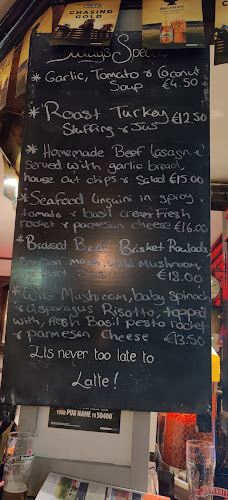 CHASING
GOLD
Todays Specials
* Garlic, Tomato & Coconut
Soup €4.50
* Roast Turkey €12.50
Stuffing & Jus
* Homemade Beef Lasagn
served with garlic bread
house cut chips & Salad €15.00
* Seafood linguini in spicy
tomato & basil cream fresh
rocket & parmesan cheese €16.00
* Braised Beef Brisket Roulade
mash, wild Mushroom,
€18.00
* Wild Mushroom, baby spinach
& Asparagus Risotto, topped
with, fresh Basil pesto rocket
& parmesan Cheese €13.50
Its never too late to
Latte!
YOUR PUB NAME TO 50400